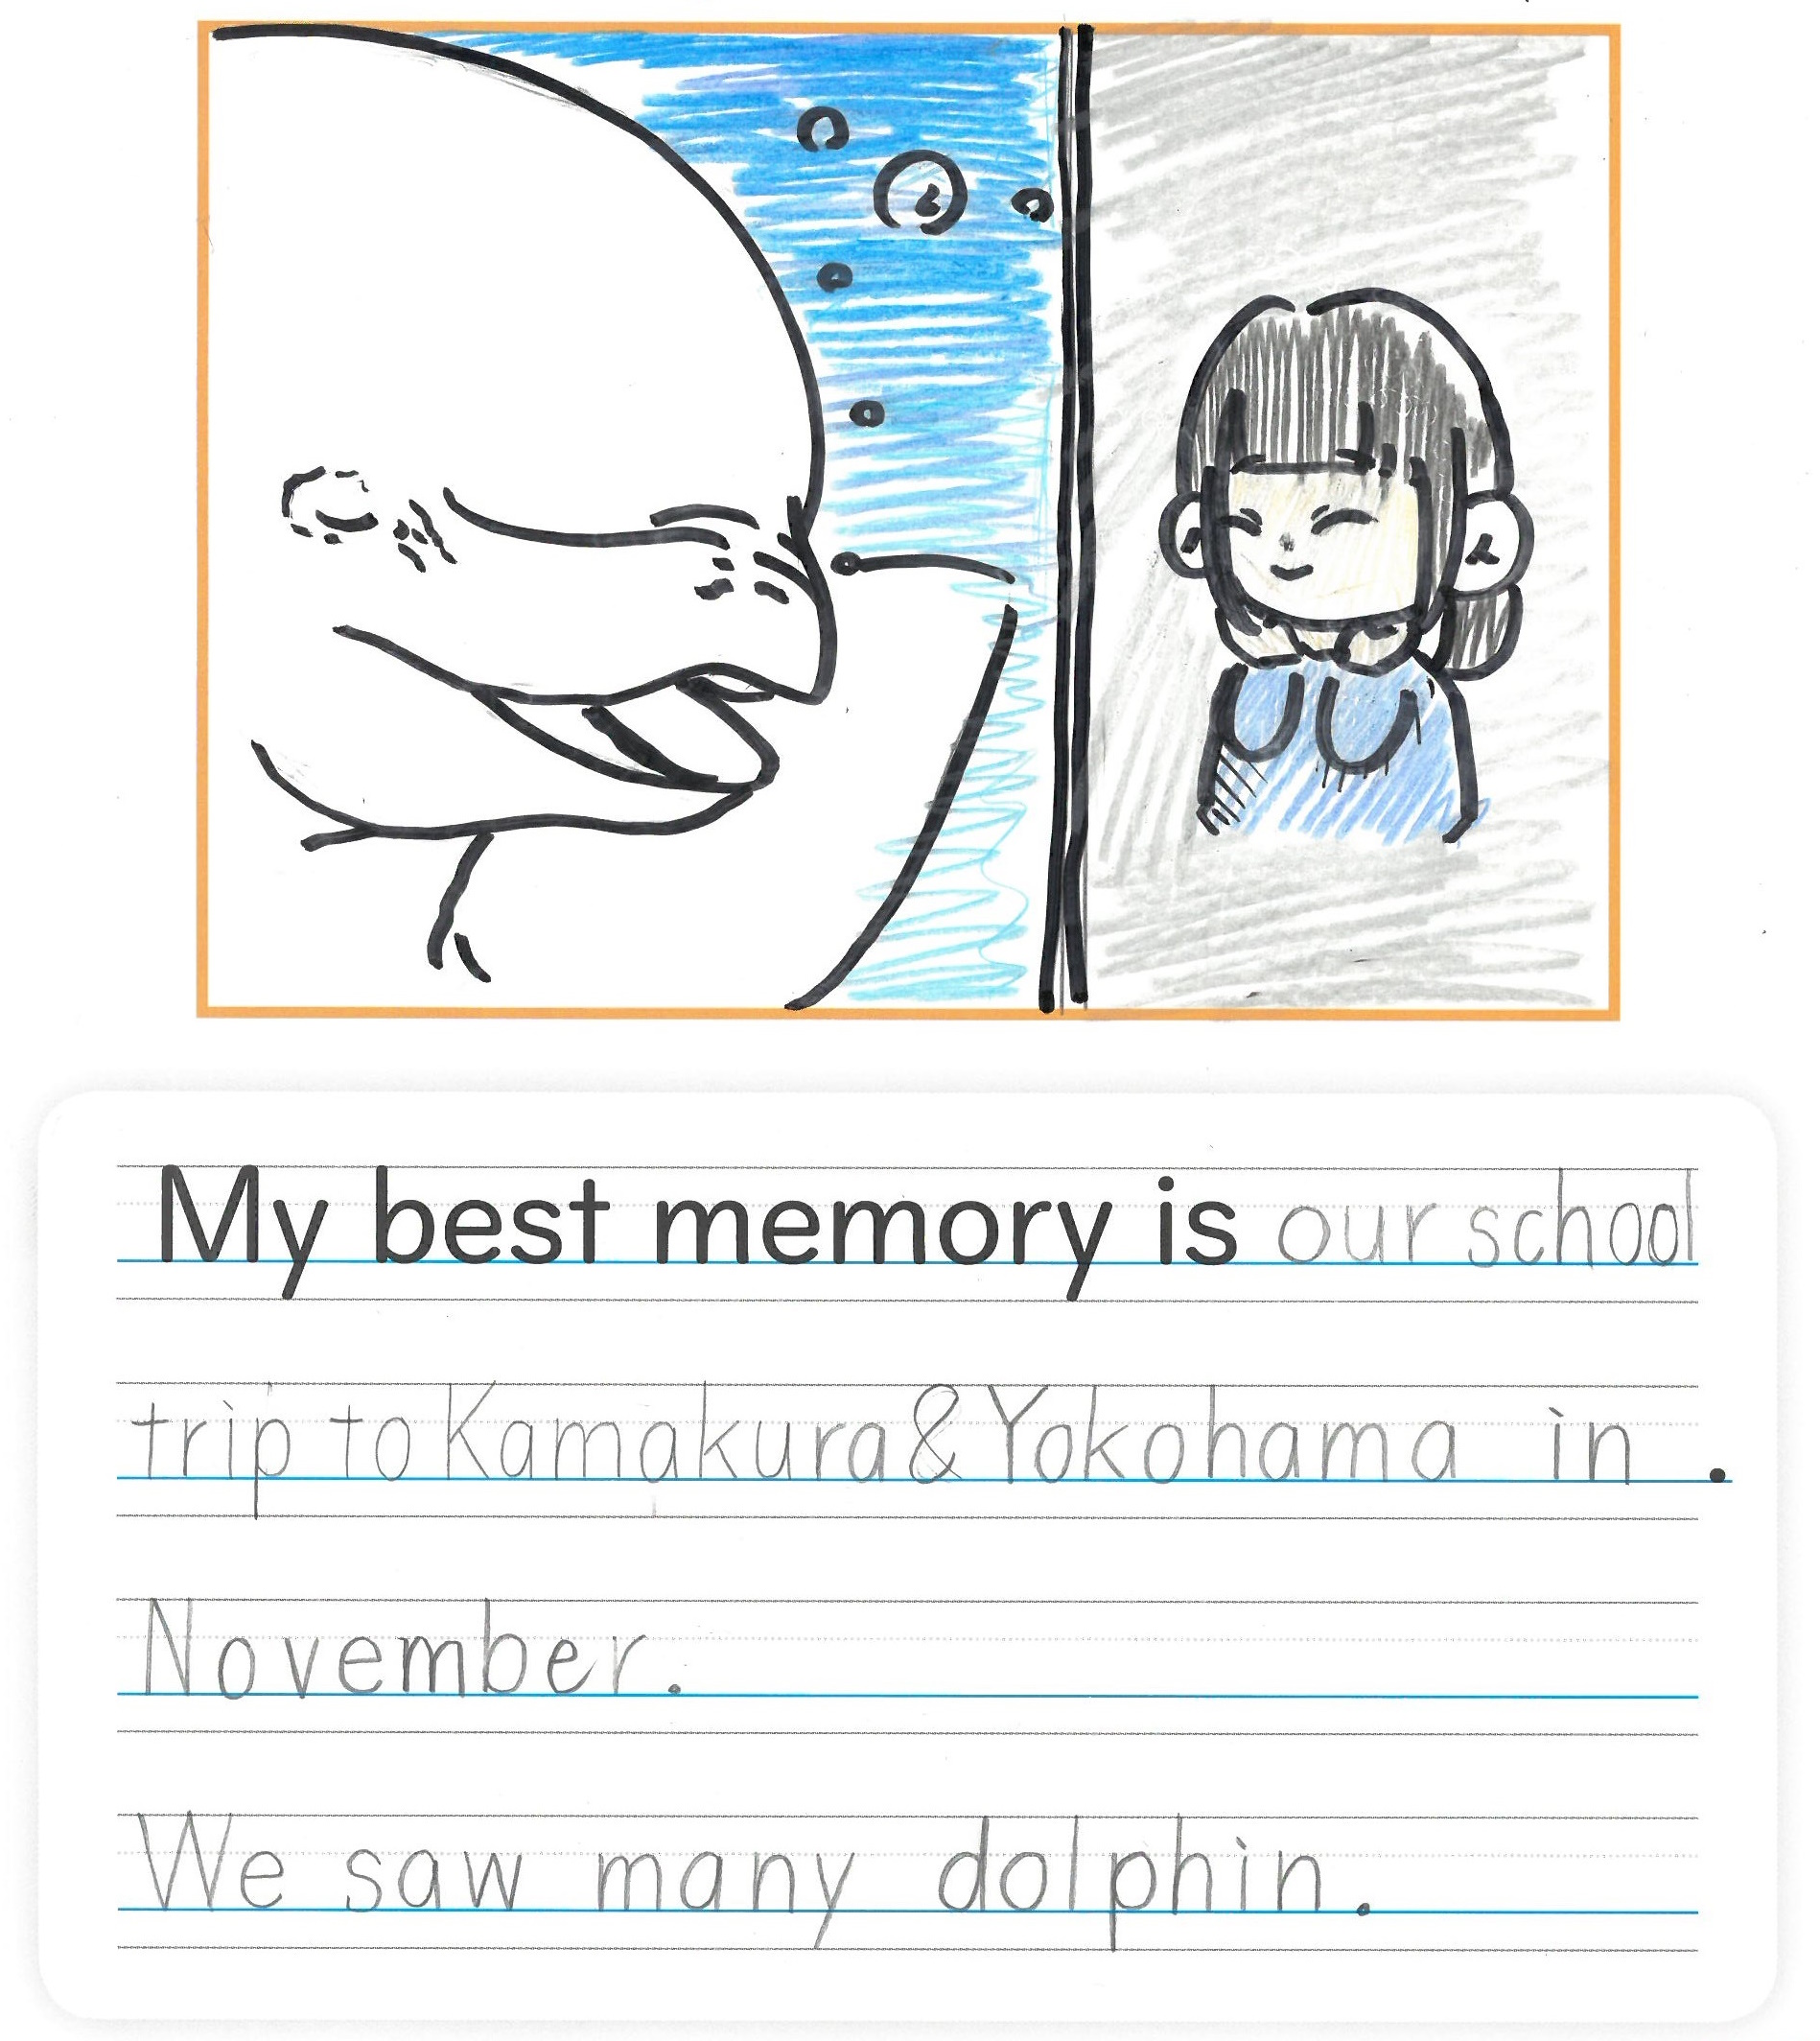 My best memory is our school
trip to Kamakura & Yokohama in .
November.
We saw many dolphin.